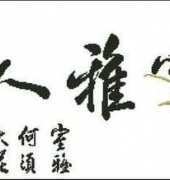 雅人
室雅
何須
大